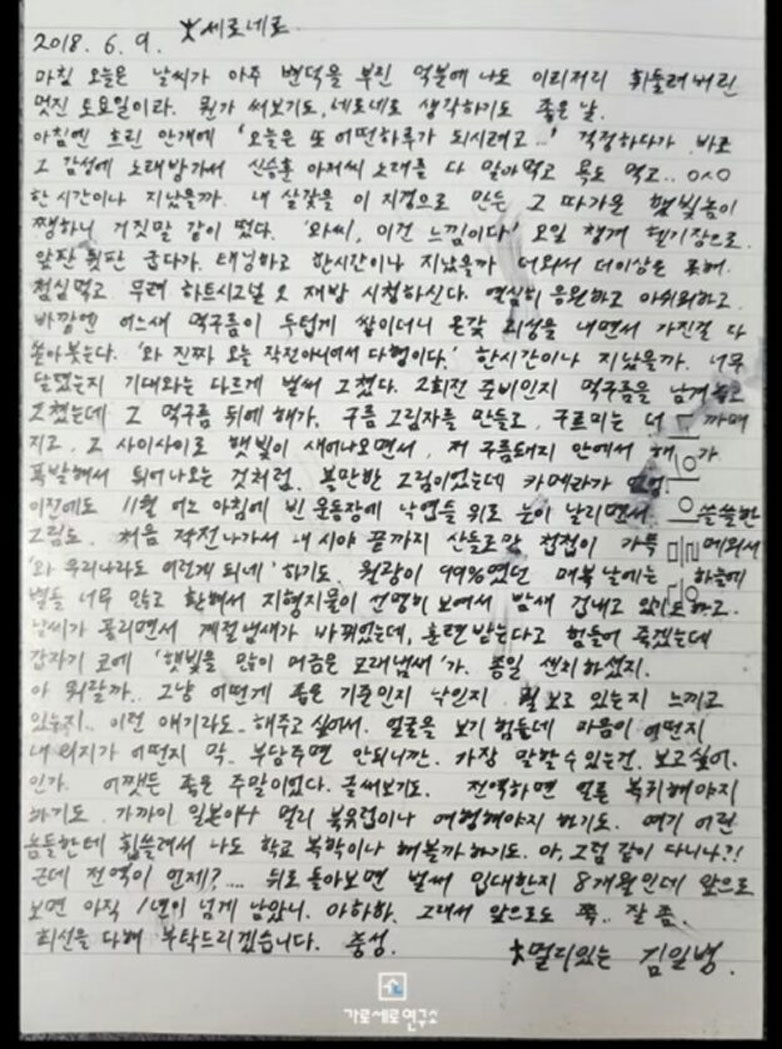 2018. 6. 9. 세로네로
마침 오늘은 날씨가 아주 변덕을 부린 덕분에 나도 이리저리 휘둘려버린
멋진 토요일이라. 뭔가 써보기도, 네로네로 생각하기도 좋은 날.
아침엔 흐린 안개에 '오늘은 또 어떤하루가 되시려고...' 걱정하다가 바로
그 감성에 노래방가서 신승훈 아저씨 노래를 다 말아먹고 욕도 먹고.. ㅇㅅㅇ
한시간이나 지났을까. 내 살갗을 이 지경으로 만든 그 따가운 햇빛놈이
쨍하니 거짓말 같이 떴다. '와씨, 이건 느낌이다' 오일 챙겨 헬기장으로.
앞판 뒷판 굽다가. 태닝하고 한시간이나 지났을까 더워서 더이상은 못해.
점심먹고 무려 하트시그널 2 재방 시청하신다. 열심히 응원하고 아쉬워하고.
바깥엔 어느새 먹구름이 두텁게 쌓이더니 온갖 괴성을 내면서 가진걸 다
쏟아붓는다. '와 진짜 오늘 작전아니여서 다행이다.' 한시간이나 지났을까. 너무
달랬는지 기대와는 다르게 벌써 그쳤다. 2회전 준비인지 먹구름을 남겨놓고
그쳤는데 그 먹구름 뒤에 해가. 구름 그림자를 만들고, 구르미는 더 까매
지고, 그 사이사이로 햇빛이 새어나오면서, 저 구름돼지 안에서 해가
폭발해서 튀어나오는 것처럼. 볼만한 그림이었는데 카메라가
이전에도 11월 어느 아침에 빈 운동장에 낙엽들 위로 눈이 날리면서 쓸쓸한
그림도. 처음 작전나가서 내 시야 끝까지 산들로만 첩첩이 가득 메워서
'와 우리나라도 이렇게 되네' 하기도. 월광이 99%였던 매복 날에는 하늘에
별들 너무 많고 환해서 지형지물이 선명히 보여서 밤새 겁내고 있기도하고.
날씨가 풀리면서 계절냄새가 바뀌었는데, 훈련받는다고 힘들어 죽겠는데
갑자기 코에 '햇빛을 많이 머금은 모래냄새'가. 종일 센치하셨지.
아 뭐랄까.. 그냥 어떤게 좋은 기준인지 낙인지 뭘 보고 있는지 느끼고
있는지.. 이런 얘기라도.. 해주고 싶어서. 얼굴을 보기 힘들데 마음이 어떤지
내 의지가 어떤지 막.. 부담주면 안되니깐. 가장 말할수있는건. 보고싶어.
인가. 어쨋든 좋은 주말이었다. 글써보기도. 전역하면 얼른 복귀해야지
하기도. 가까이 일본이나 멀리 북유럽이나 여행해야지 하기도. 여기 어린
놈들한테 휩쓸려서 나도 학교 복학이나 해볼까하기도. 아, 그럼 같이 다니나?!
근데 전역이 언제?.... 뒤로 돌아보면 벌써 입대한지 8개월인데 앞으로
보면 아직 1년이 넘게 남았니. 아하하. 그래서 앞으로도 쭉.. 잘 좀.
최선을 다해 부탁드리겠습니다. 충성.
멀리있는 김일병.
가로세로연구소